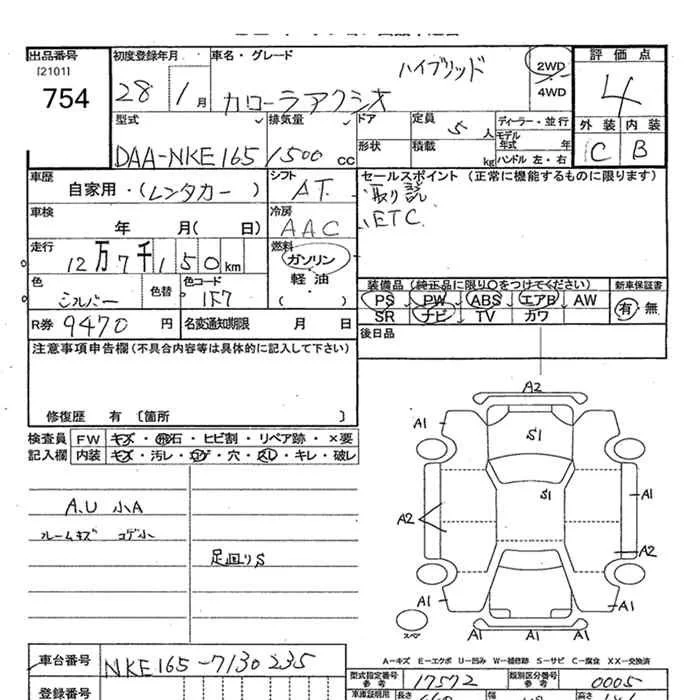 出品番号 初度登録年月 車名・グレード 評価点
[2101] ハイブリッド 2WD
754 28 1月 カローラアクシオ 4WD 4
型式 排気量 ドア 定員 5人 ディーラー・並行 外装 内装
モデル年式 年
DAA-NKE165 1500cc 形状 積載 kg ハンドル 左・右 C B
車歴 シフト セールスポイント(正常に機能するものに限ります)
自家用・(レンタカー) AT 取り説
車検 冷房 ETC
年 月(日) AAC
走行 燃料
12万7千150km ガソリン
色 色替 色コード 軽油 装備品(純正品に限り○をつけてください) 新車保証書
シルバー 1F7 ( ) PS PW ABS エアB AW 有・無
R券 9470円 名変通知期限 月 日 SR ナビ TV カワ
注意事項申告欄(不具合内容等は具体的に記入して下さい) 後日品
修復歴 有 〔箇所 〕
検査員 FW キズ・飛石・ヒビ割・リペア跡・×要
記入欄 内装 キズ・汚レ・コゲ・穴・スレ・キレ・破レ
A2
A1 A1
S1
A.U 小A S1 A1
ルームキズ コゲ小 A2
足回りS A2
A1 A1
スペア A1 A1 A1
車台番号 NKE165-7130235
A-キズ E-エクボ U-凹み W-補修跡 S-サビ C-腐食 XX-交換済
型式指定番号 参考 17572 類別区分番号 参考 0005
登録番号 車庫証明用 長さ 幅 高さ